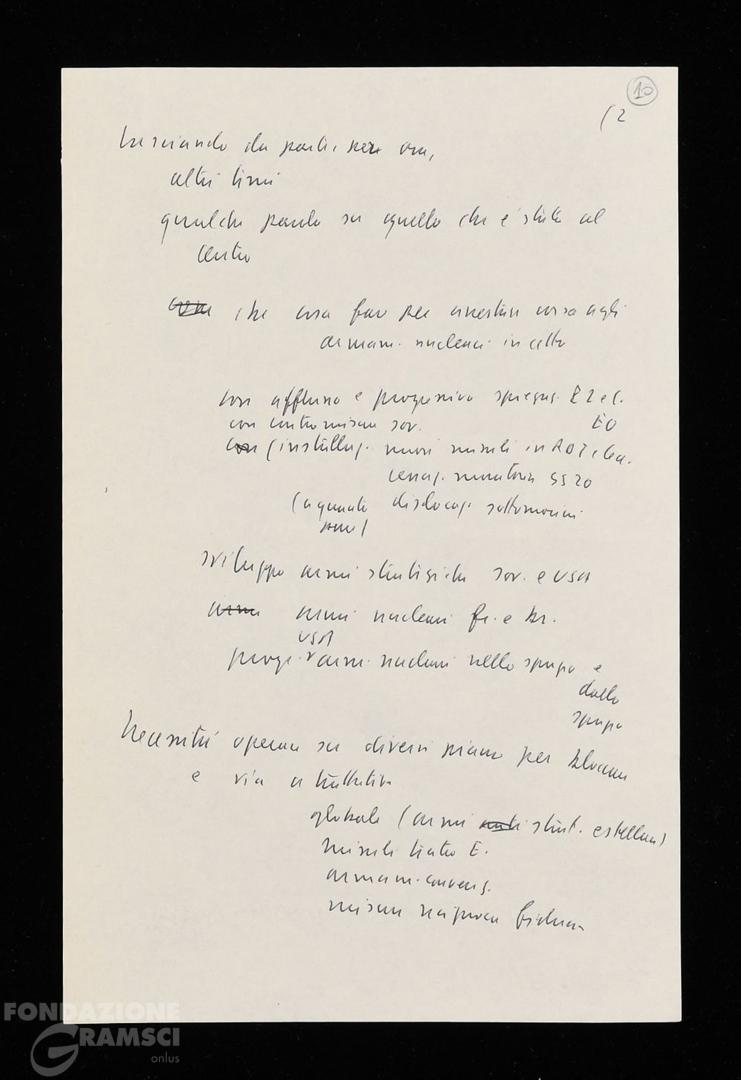 10
(2
Lasciando da parte, per ora,
altri temi
qualche parola su quello che è stato al
centro
che cosa fare per arrestare corsa agli
armam. nucleari in atto
con afflusso e progressivo spiegam.
con contromisure sov. EO
con (installaz. nuovi missili in RDT e Cec.
cessaz. moratoria SS20
(aggunato dislocaz. sottomarini
sviluppo armi strategiche sov. e USA
armi nucleari fr. e br.
USA
progr. armi nucleari nello spazio e
dallo
spazio
Necessità operare su diversi piani per bloccare
e via a trattative
globale (armi strat. e stellari)
missili teatro E.
armam. convenz.
misure reciproca fiducia
FONDAZIONE
GRAMSCI
onlus